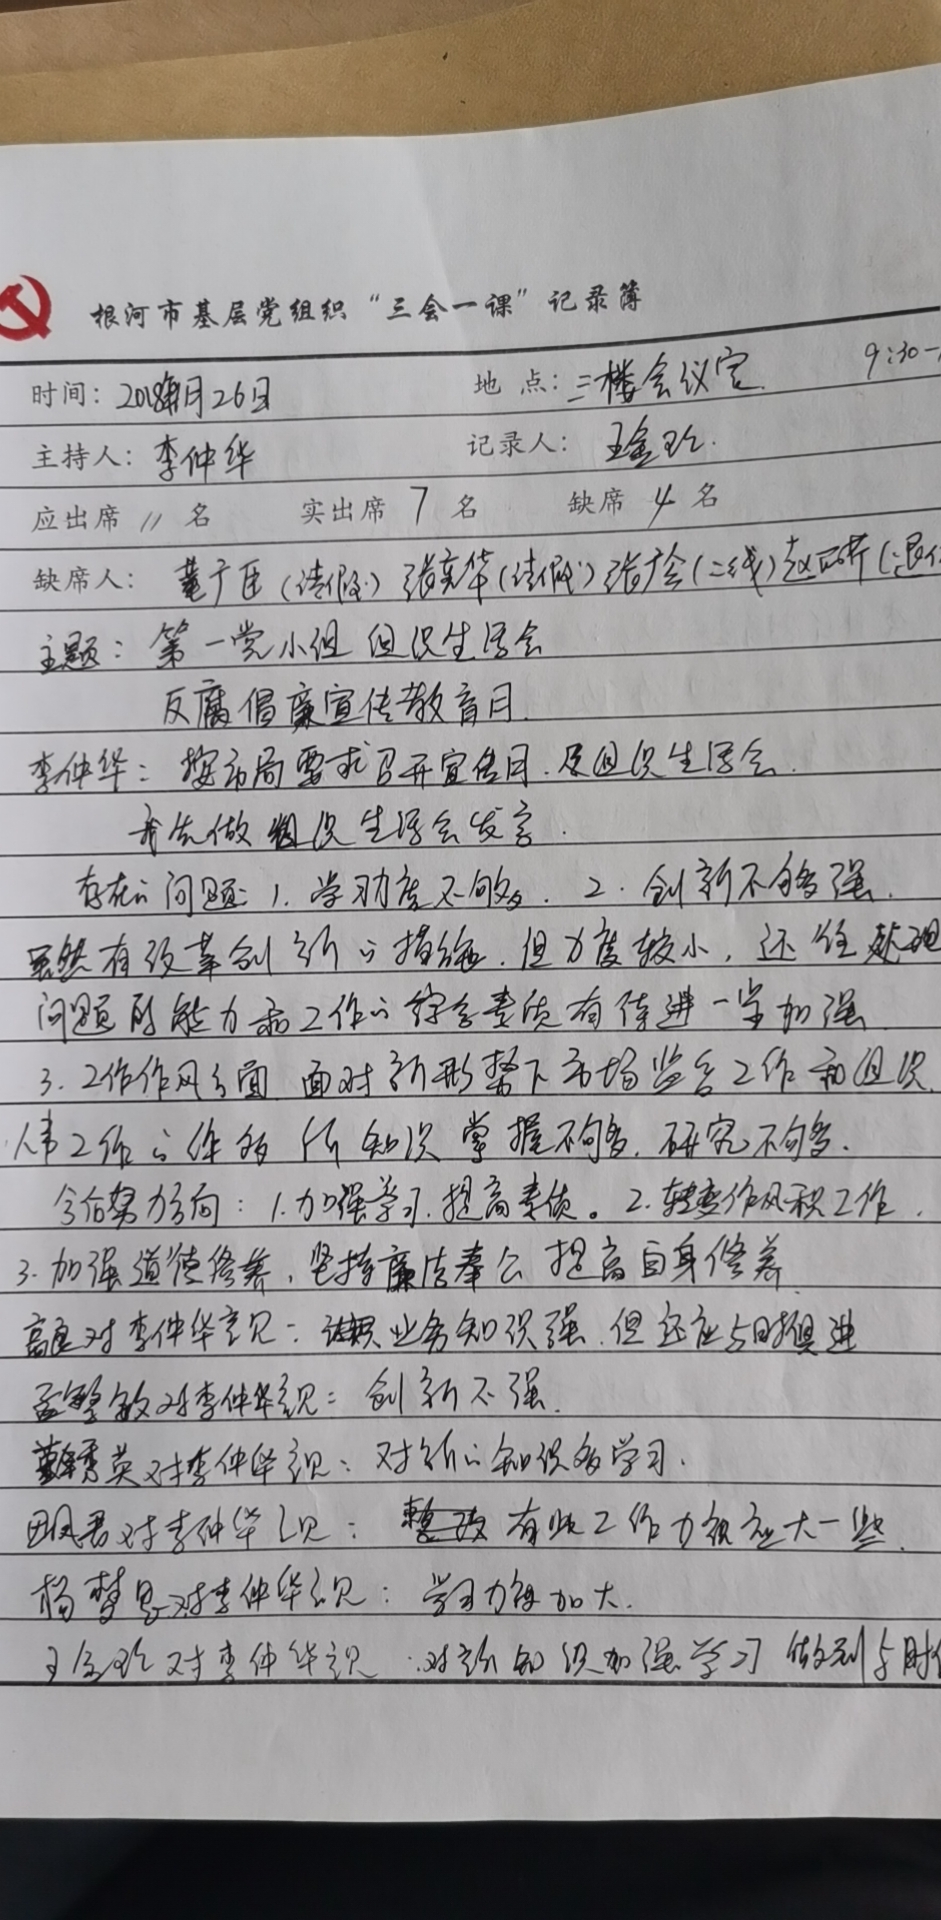 根河市基层党组织“三会一课”记录簿
时间: 2018年1月26日 地点: 三楼会议室 9:30-
主持人: 李仲华 记录人: 王金玲
应出席 11 名 实出席 7 名 缺席 4 名
缺席人: 董广臣(请假) 张亮华(请假) 张会(二线) 赵(退休
主题: 第一党小组 组织生活会
反腐倡廉宣传教育日.
李仲华: 按市局要求召开宣传日.及组织生活会.
我先做组织生活会发言.
存在的问题: 1. 学习力度不够. 2. 创新不够强.
虽然有改革创新的措施.但力度较小, 还在处理
问题的能力和工作的综合素质有待进一步加强
3. 工作作风方面 面对新形势下市场监管工作和组织
人事工作的 知识掌握不够. 研究不够.
今后努力方向: 1.加强学习.提高素质。2.转变作风积工作.
3. 加强道德修养, 坚持廉洁奉公 提高自身修养
高 对李仲华意见: 业务知识强.但还应与时俱进
孟繁敏对李仲华意见: 创新不强.
秀英对李仲华意见: 对新的知识多学习.
田凤君对李仲华意见: 有些工作力度应大一些.
杨梦 对李仲华意见: 学习力度加大.
王金玲对李仲华意见: 对新知识加强学习 做到与时俱